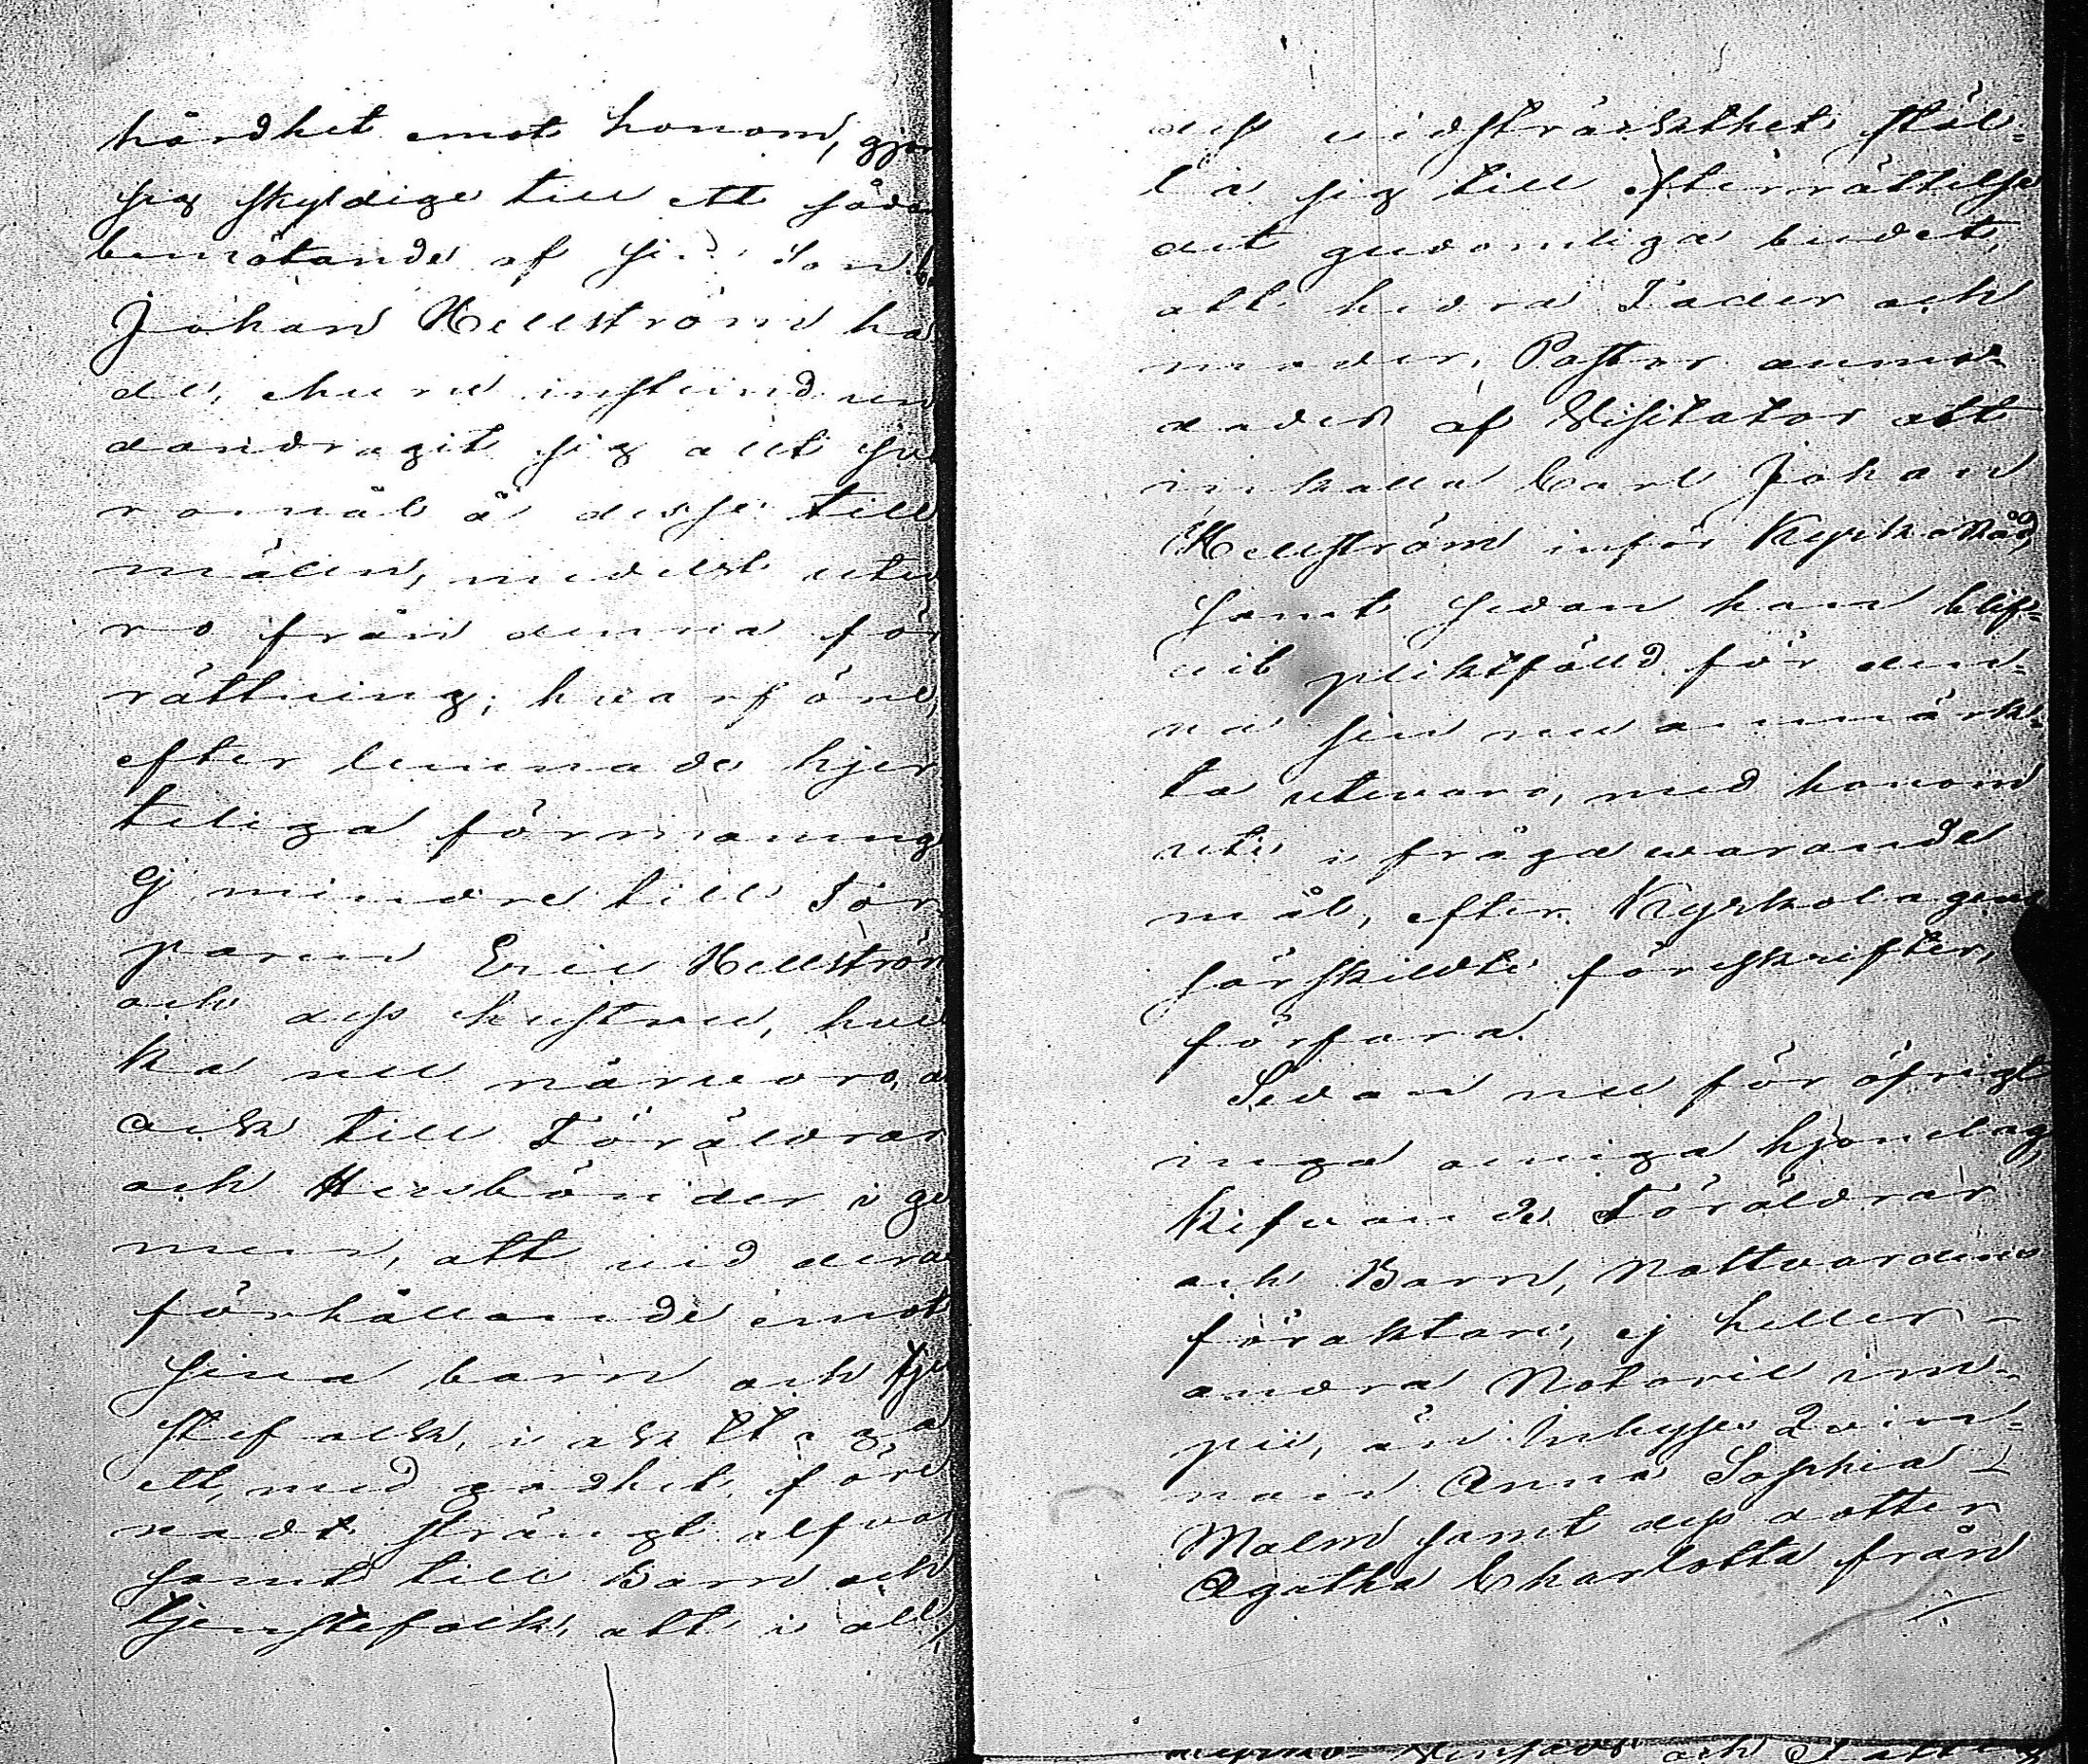 hårdhet emot honom, gjor
sig skyldige till ett såda
bemötande af sin Son.
Johan Hellström ha
de, ehuru instämd un
dandragit sig allt sva
romål å desse till
målen, medelst uteva
ro från denna för
rättning; hvarföre,
efter lemnade hjer
teliga förmaning
Ej mindre till Tor
paren Eric Hellström
och dess hustru, hvil
ka nu närvoro, ä
ock till Föräldrar
och Husbönder i ge
men, att vid deras
förhållande emot
sina barn och tje
stefolk, iakttaga
ett, med godhet före
nadt strängt alfvar
samt till Barn och
tjenstefolk, att i all
dess vidsträckthet stäl=
la sig till efterrättelse
det gudomliga budet,
att hedra Fader och
moder, Pastor anmo=
dades af Visitator att
inkalla Carl Johan
Hellström inför Kyrko Råd,
samt sedan han blif=
vit pliktfälld för den=
na sin nu anmärk=
ta utevaro, med honom
uti i fråga warande
mål, efter Kyrkolagens
särskildte föreskrifter,
förfara.
Sedan nu för öfrigt
inga oeniga hjonelag,
kifvande Föräldrar
och Barn, Nattvardens
föraktare, ej heller
andra Notorie im=
pii, än Inhyses Qvin=
nan Anna Sophia
Malm samt dess dotter
Agatha Charlotta från
och